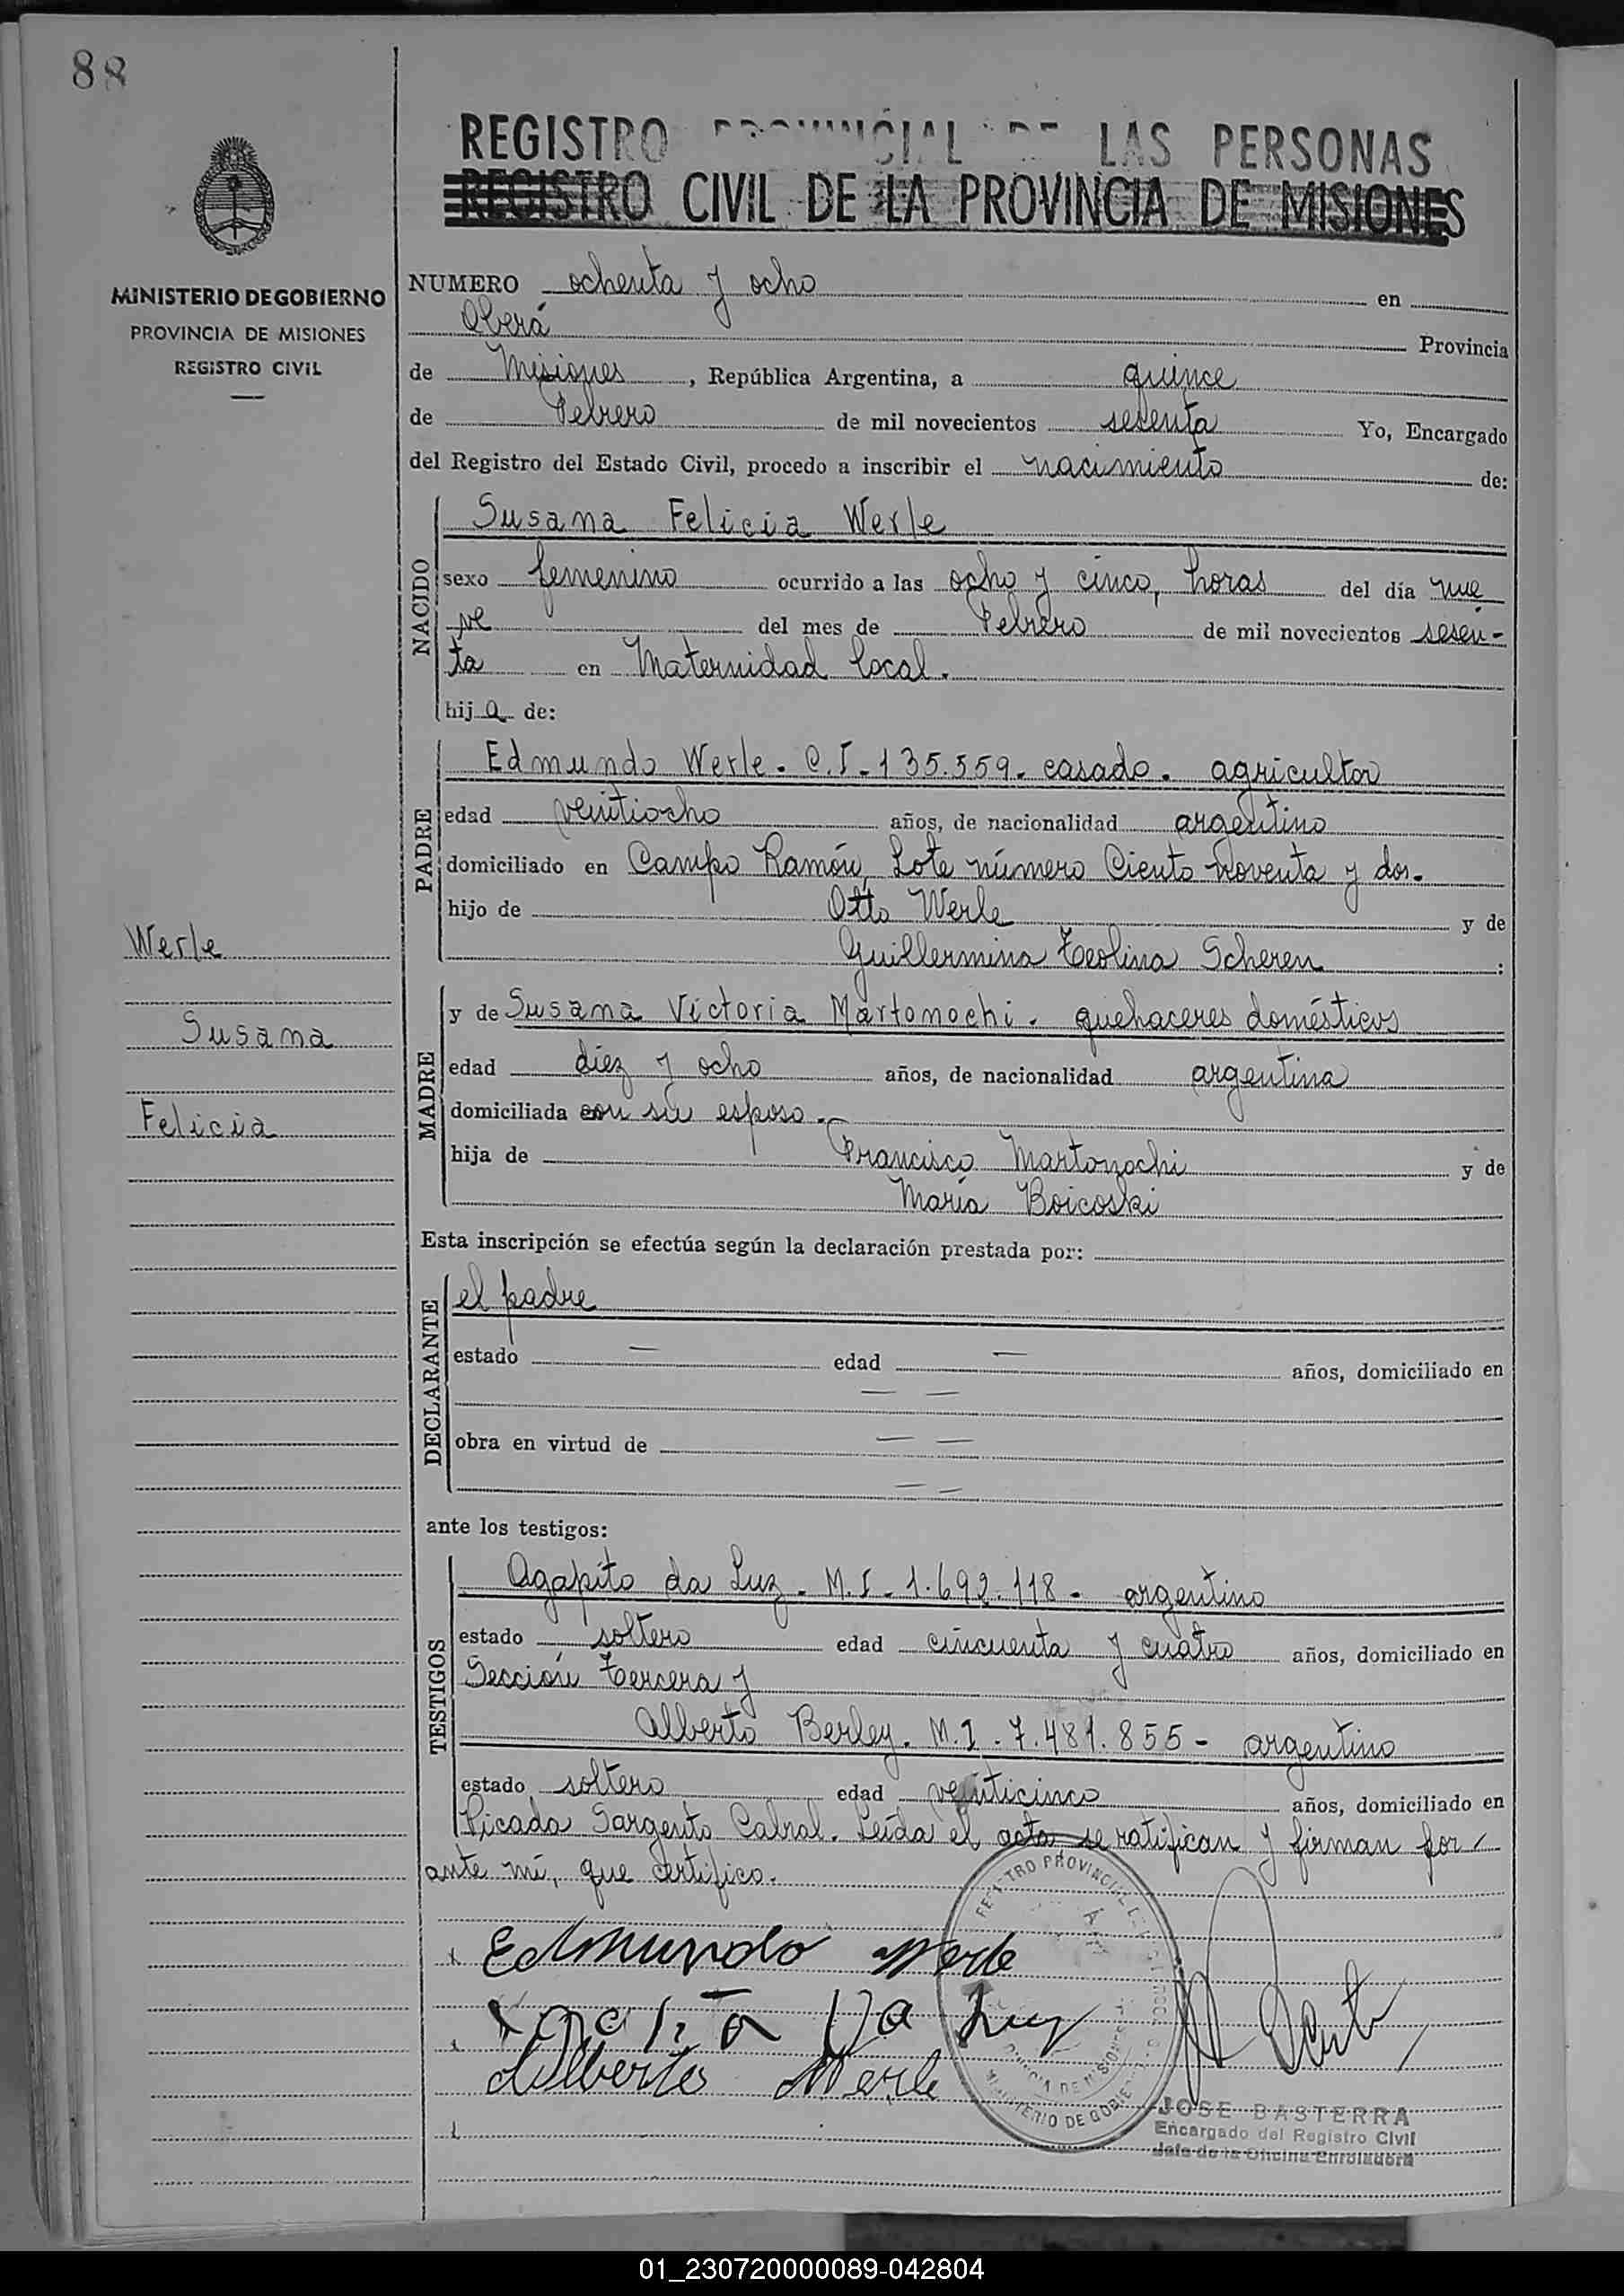 88
REGISTRO PROVINCIAL DE LAS PERSONAS
REGISTRO CIVIL DE LA PROVINCIA DE MISIONES
MINISTERIO DE GOBIERNO
PROVINCIA DE MISIONES
REGISTRO CIVIL
NUMERO ochenta y ocho en
Oberá Provincia
de Misiones, República Argentina, a quince
de Febrero de mil novecientos sesenta Yo, Encargado
del Registro del Estado Civil, procedo a inscribir el nacimiento de:
NACIDO
Susana Felicia Werle
sexo femenino ocurrido a las ocho y cinco, horas del día nue
ve del mes de Febrero de mil novecientos sesen-
ta en Maternidad local.
hija de:
PADRE
Edmundo Werle. C.I. 135.559. casado. agricultor
edad veintiocho años, de nacionalidad argentino
domiciliado en Campo Ramón, Lote número Ciento Noventa y dos.
hijo de Otto Werle y de
Guillermina Teolina Scheren :
Werle
Susana
Felicia
MADRE
y de Susana Victoria Martonochi. quehaceres domésticos
edad diez y ocho años, de nacionalidad argentina
domiciliada con su esposo.
hija de Francisco Martonochi y de
María Boicoski
Esta inscripción se efectúa según la declaración prestada por:
DECLARANTE
el padre
estado — edad — años, domiciliado en
— —
obra en virtud de — —
— —
ante los testigos:
TESTIGOS
Agapito da Luz. M.I. 1.692.118 - argentino
estado soltero edad cincuenta y cuatro años, domiciliado en
Sección Tercera y
Alberto Berley. M.I. 7.481.855 - argentino
estado soltero edad veinticinco años, domiciliado en
Picada Sargento Cabral. Leída el acta se ratifican y firman por
ante mí, que certifico.
Edmundo Werle
Da Luz
Alberto Werle
REGISTRO PROVINCIAL
PROVINCIA DE MISIONES
MINISTERIO DE GOBIERNO
JOSE BASTERRA
Encargado del Registro Civil
Jefe de la Oficina Enroladora
01_230720000089-042804